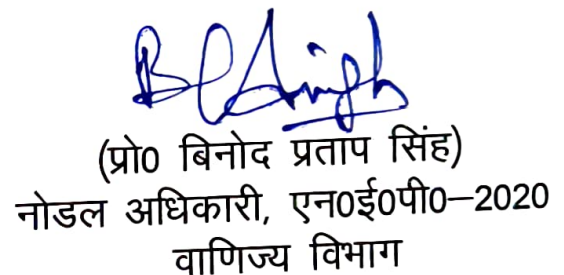 BPSingh
(प्रो0 बिनोद प्रताप सिंह)
नोडल अधिकारी, एन0ई0पी0—2020
वाणिज्य विभाग